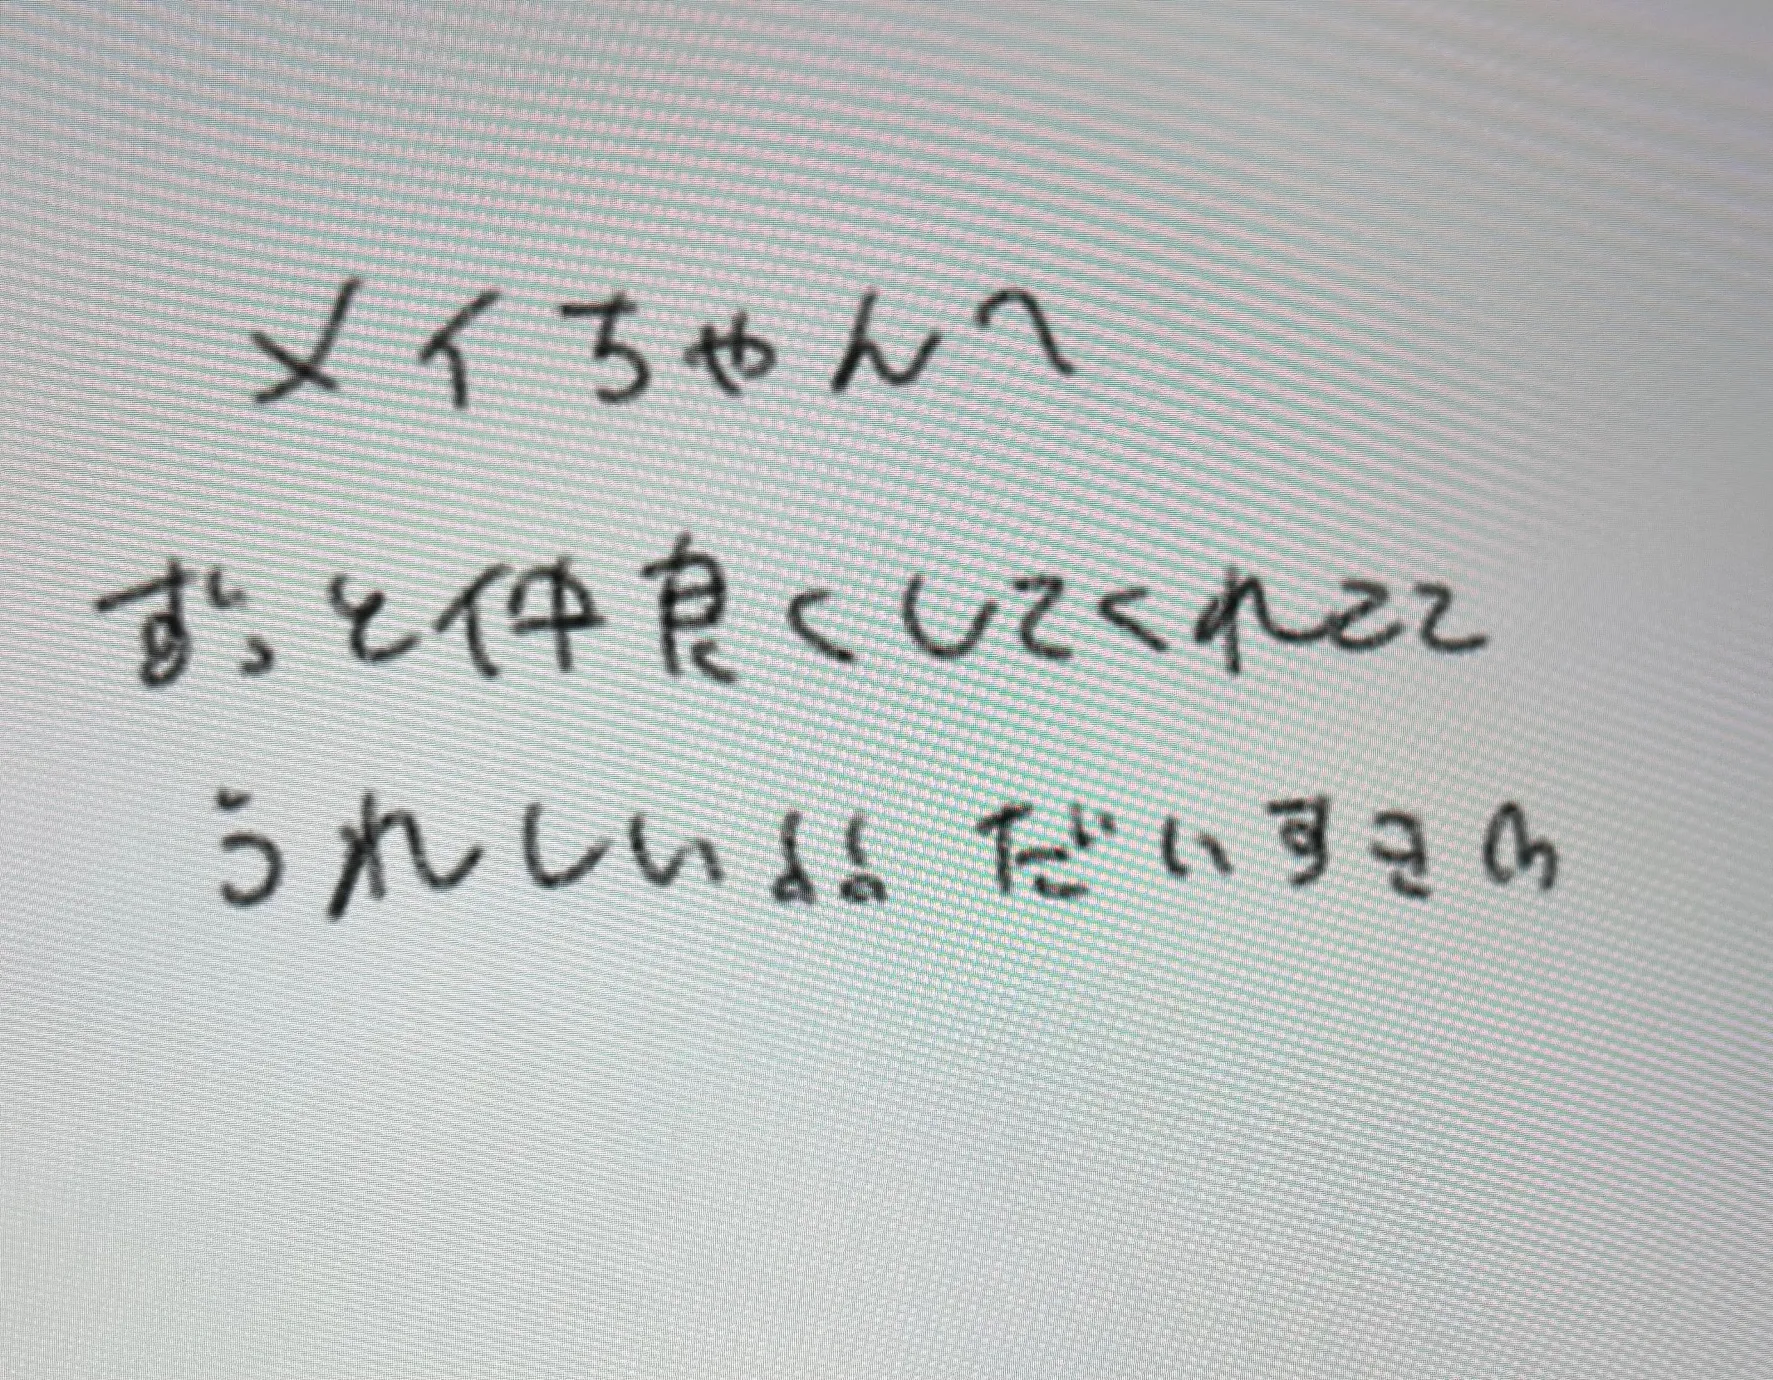 メイちゃんへ
ずっと仲良くしてくれてて
うれしいよよ だいすき